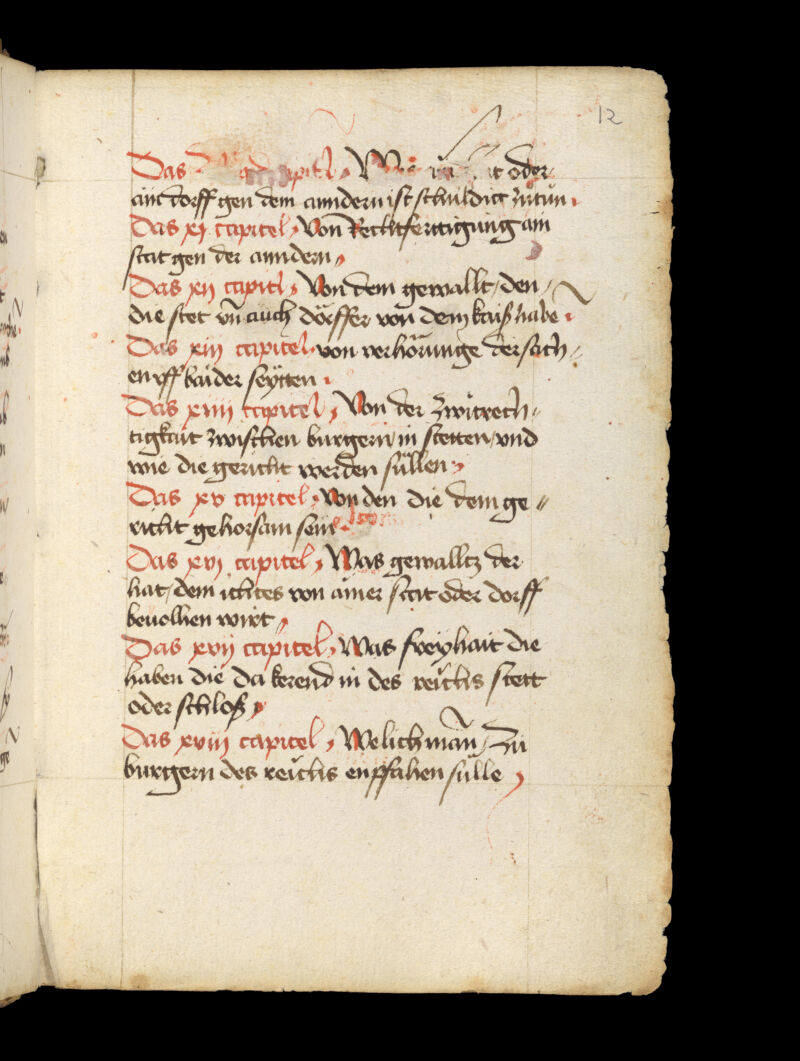 12
Das capitl, oder
ain dorff gen dem anndern ist schuldig zu tun
Das xj capitel, Von Rechtfertigung ain
stat gen der anndern
Das xij capitl, Von dem gewallt, den
die stet vn̄ auch dörffer von dem kaiß habē
Das xiij capitel von verhörunge der sach⸗
en vff baider seytten
Das xiiij capitel, Von der zwitrech⸗
tigkait zwischen burgern in stetten vnd
wie die gericht werden süllen
Das xv capitel, von den die dem ge⸗
richt gehorsam sein
Das xvj capitel, Was gewalltz der
hat, dem ichtes von ainer stat oder dorff
beuolhen wirt
Das xvij capitel, Was freyhait die
haben die da kerend in des reichs stett
oder schloß
Das xviij capitel, Welich man̄, zu
burgern des reichs enpfahen sülle